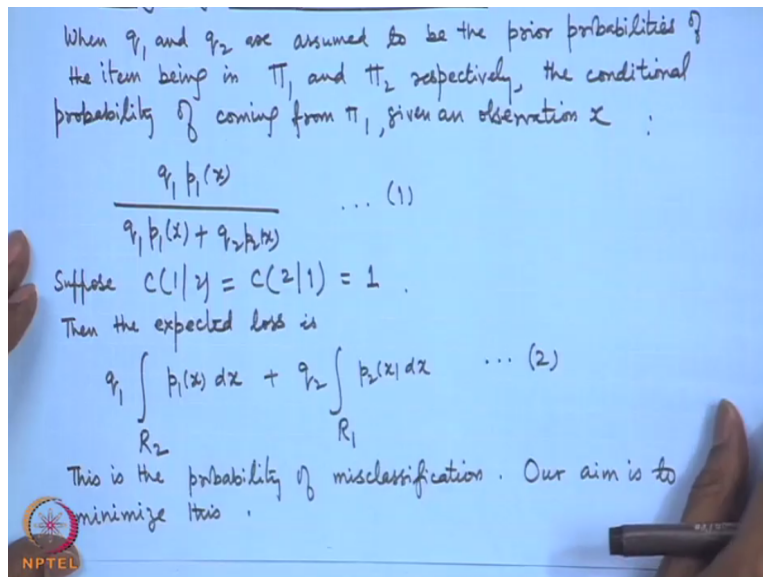 When q₁ and q₂ are assumed to be the prior probabilities of
the item being in π₁ and π₂ respectively, the conditional
probability of coming from π₁, given an observation x :
q₁ p₁(x)
q₁ p₁(x) + q₂ p₂(x) ... (1)
Suppose C(1/2) = C(2/1) = 1 .
Then the expected loss is
q₁ ∫ p₁(x) dx + q₂ ∫ p₂(x) dx ... (2)
R₂ R₁
This is the probability of misclassification. Our aim is to
minimize this .
NPTEL